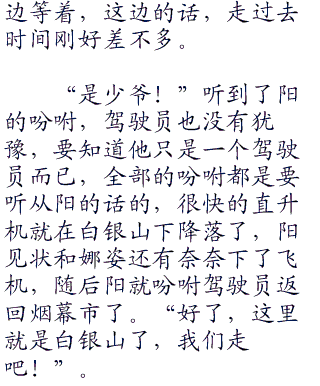 边等着，这边的话，走过去
时间刚好差不多。
“是少爷！”听到了阳
的吩咐，驾驶员也没有犹
豫，要知道他只是一个驾驶
员而已，全部的吩咐都是要
听从阳的话的，很快的直升
机就在白银山下降落了，阳
见状和娜姿还有奈奈下了飞
机，随后阳就吩咐驾驶员返
回烟幕市了。“好了，这里
就是白银山了，我们走
吧！”。